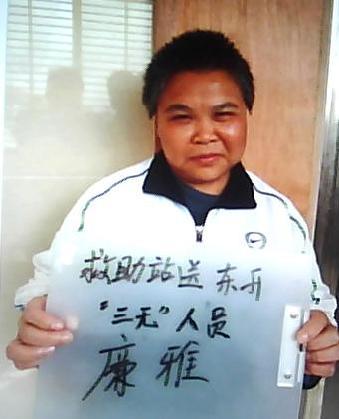 救助站送东升
“三无”人员
廉雅